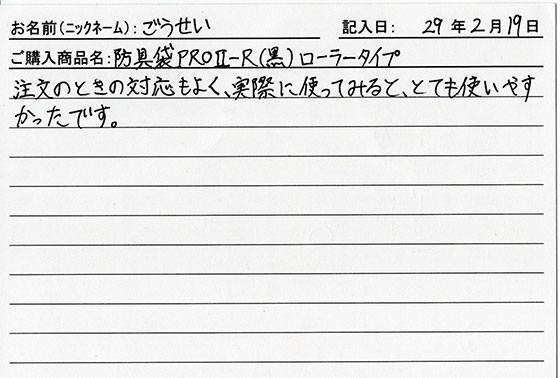 お名前(ニックネーム):ごうせい 記入日: 29年2月19日
ご購入商品名:防具袋PROⅡ-R(黒)ローラータイプ
注文のときの対応もよく、実際に使ってみると、とても使いやす
かったです。